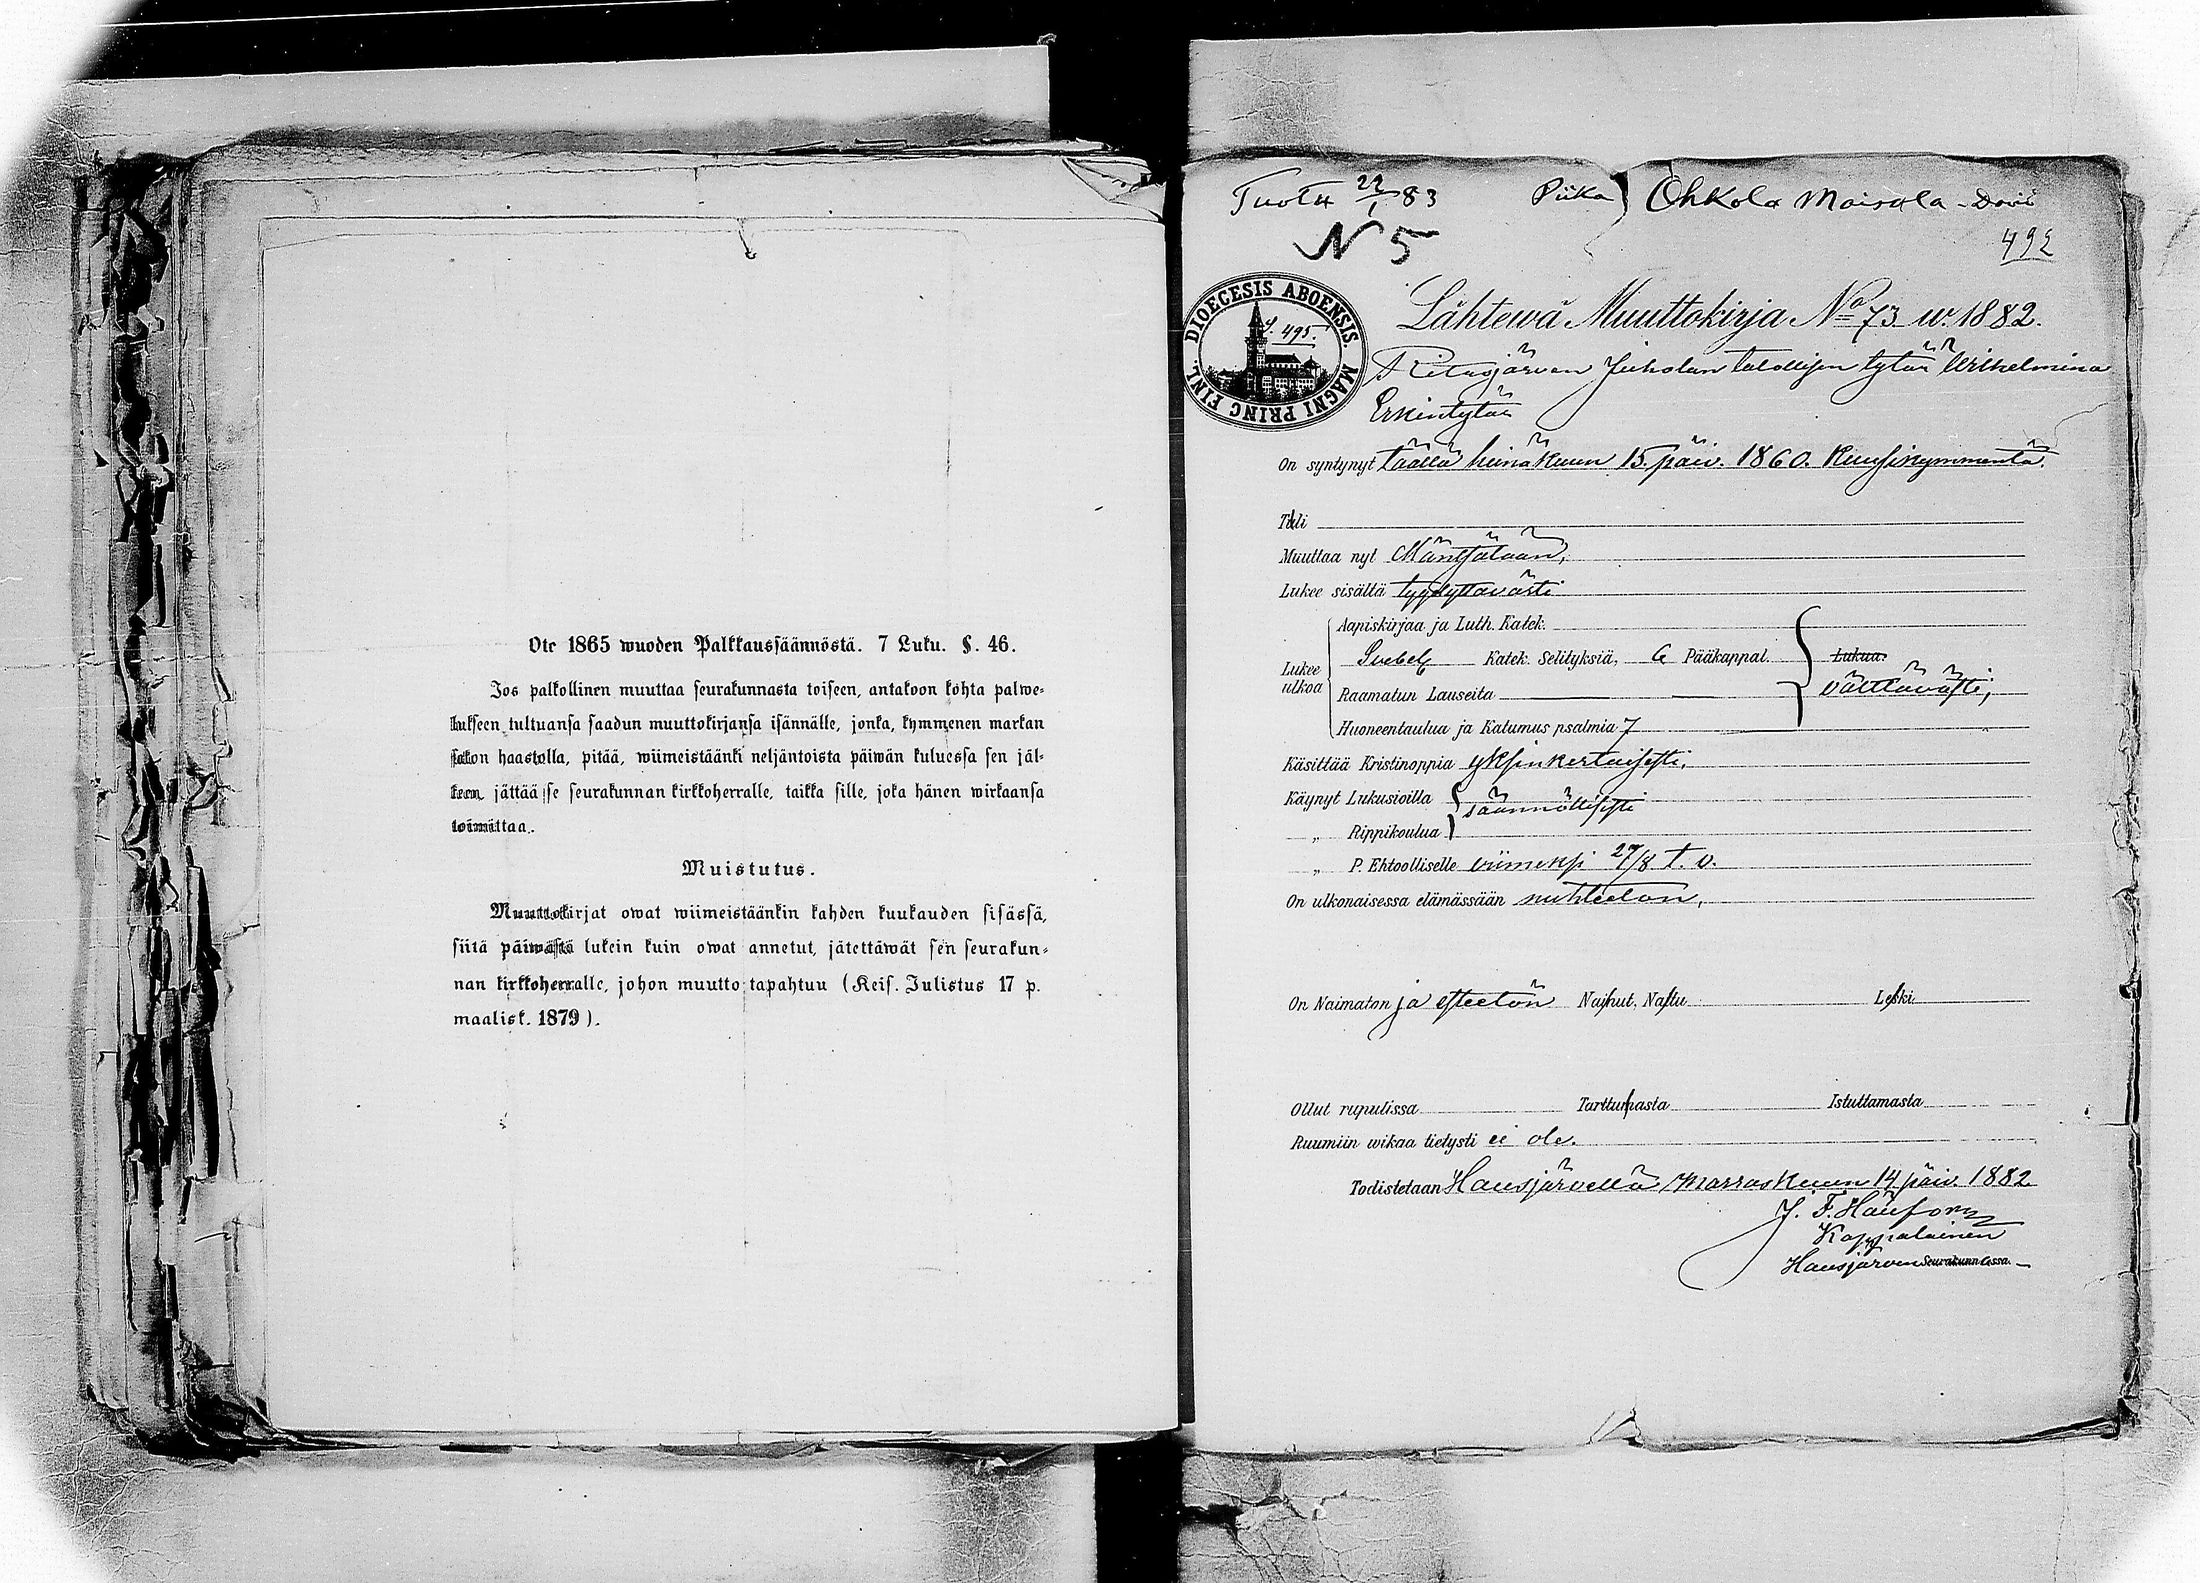 Ote 1865 wuoden Palkkaussäännöstä. 7 Luku. §. 46.
Jos palkollinen muuttaa seurakunnasta toiseen, antakoon kohta palwe-
lukseen tultuansa saadun muuttokirjansa isännälle, jonka, kymmenen markan
sakon haastolla, pitää, wiimeistäänki neljäntoista päiwän kuluessa sen jäl-
keen, jättää se seurakunnan kirkkoherralle, taikka sille, joka hänen wirkaansa
toimittaa.
Muistutus.
Muuttokirjat owat wiimeistäänkin kahden kuukauden sisässä,
siitä päiwästä lukein kuin owat annetut, jätettäwät sen seurakun-
nan kirkkoherralle, johon muutto tapahtuu (Keis. Julistus 17 p.
maalisk. 1879).
Tuotu 22/1 83 Piika Ohkola Maisala
N 5
492
DIOECESIS ABOENSIS. MAGNI PRINC FINL.
S. 495.
Lähtewä Muuttokirja No 73 w. 1882.
Juholan talollisen tytär Wilhelmina
Erkintytär
On syntynyt täällä heinäkuun 15. päiv. 1860. Kuusikymmentä.
Tuli
Muuttaa nyt Mäntsälään,
Lukee sisältä tyydyttävästi
Aapiskirjaa ja Luth. Katek.
Lukee ulkoa Svebel Katek. Selityksiä, 6 Pääkappal. Lukua.
Raamatun Lauseita välttävästi,
Huoneentaulua ja Katumus psalmia 7
Käsittää Kristinoppia yksinkertaisesti.
Käynyt Lukusioilla säännöllisesti
„ Rippikoulua
„ P. Ehtoolliselle viimeksi 27/8 t. v.
On ulkonaisessa elämässään nuhteeton,
On Naimaton ja esteetön Nainut, Naitu Leski
Ollut rupulissa Tarttumasta Istuttamasta
Ruumiin wikaa tietysti ei ole.
Todistetaan Hausjärvellä Marraskuun 14 päiv. 1882
J. F.
Kappalainen
Hausjärven Seurakunnassa.